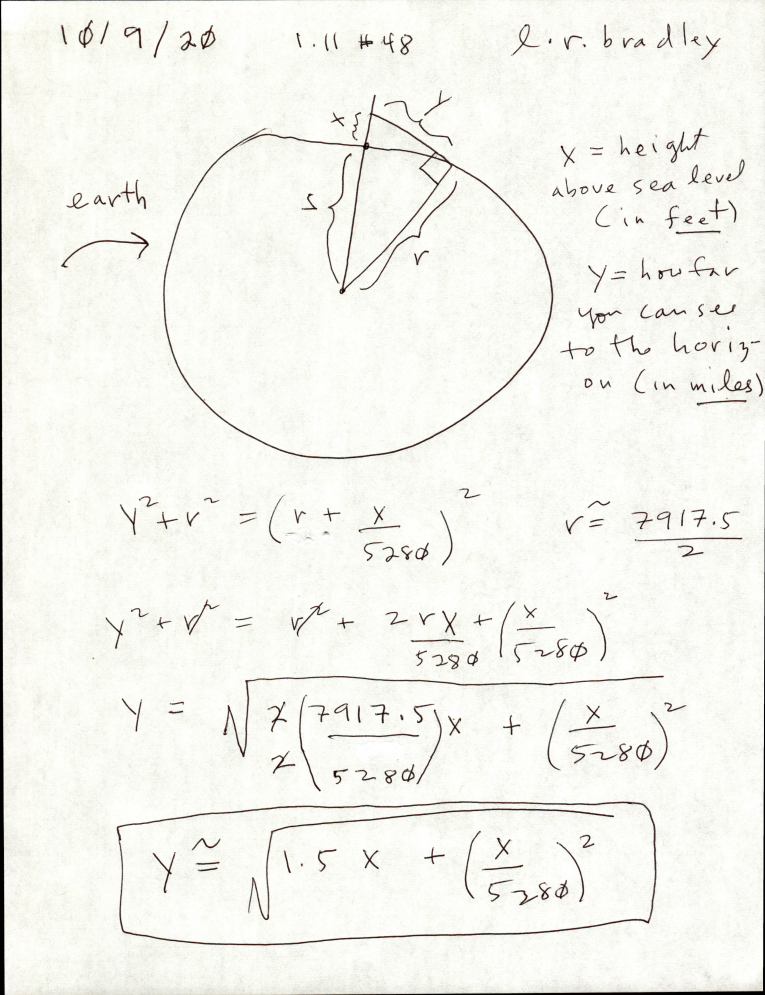 10/9/20 1.11 #48 l.r. bradley
x {
y
earth
r
r
x = height
above sea level
(in feet)
y = how far
you can see
to the horiz-
on (in miles)
y² + r² = (r + x/5280)² r ≅ 7917.5/2
y² + r² = r² + 2rx/5280 + (x/5280)²
y = √(2/2 (7917.5/5280) x + (x/5280)²)
y ≅ √(1.5 x + (x/5280)²)